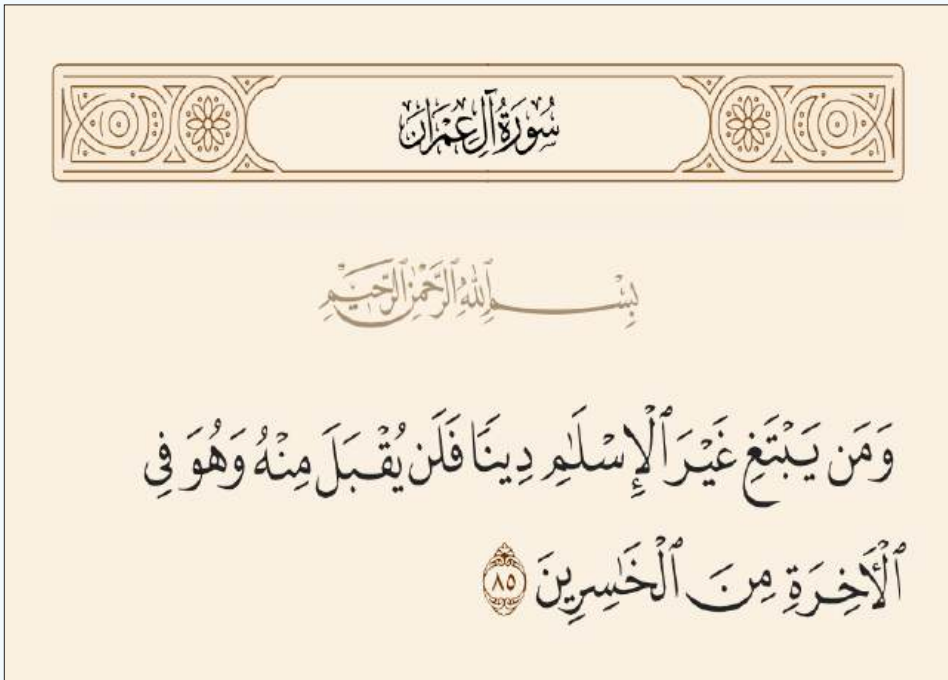 سُورَةُ آلِ عِمْرَانَ
بِسْمِ ٱللَّهِ ٱلرَّحْمَٰنِ ٱلرَّحِيمِ
وَمَن يَبْتَغِ غَيْرَ ٱلْإِسْلَٰمِ دِينًا فَلَن يُقْبَلَ مِنْهُ وَهُوَ فِى
ٱلْأَخِرَةِ مِنَ ٱلْخَٰسِرِينَ ٨٥